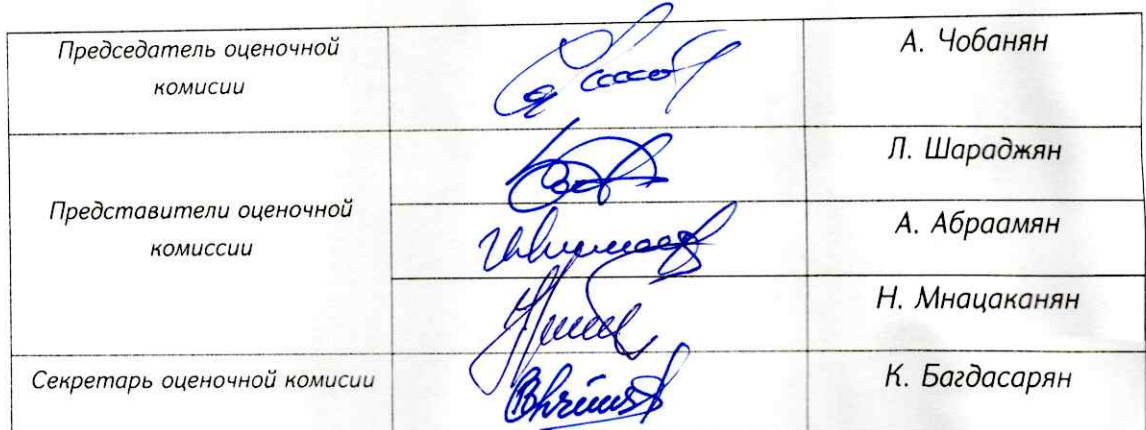 Председатель оценочной
комисии
А. Чобанян
Представители оценочной
комиссии
Л. Шараджян
А. Абраамян
Н. Мнацаканян
Секретарь оценочной комисии
К. Багдасарян